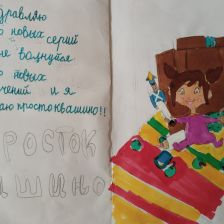 здравляю
о новых серий
ые волнуйся
о новых
чений и я
аю простоквашино!!
РОСТОК
ШИНО